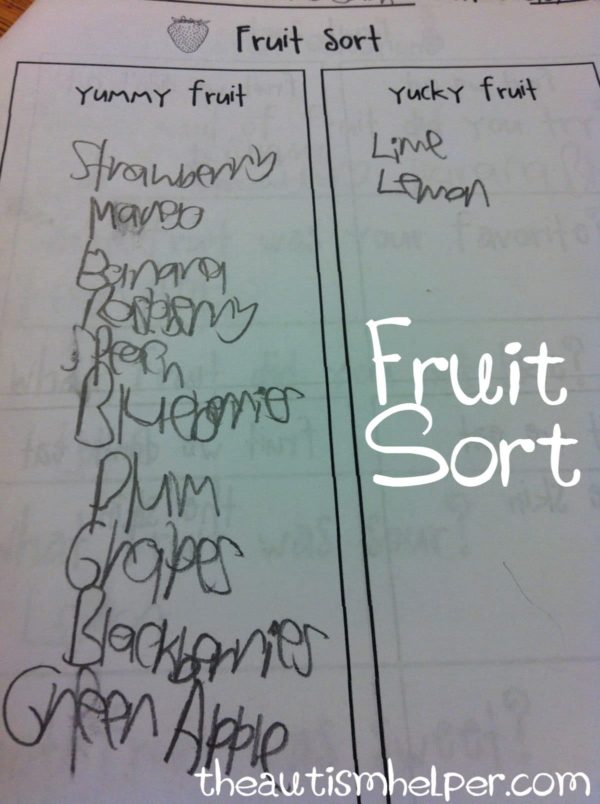 Fruit Sort
yummy fruit
Strawberry
Mango
Banana
Rasbberry
Peech
Blueberries
Plum
Grapes
Blackberries
Green Apple
yucky fruit
Lime
Lemon
Fruit
Sort
theautismhelper.com